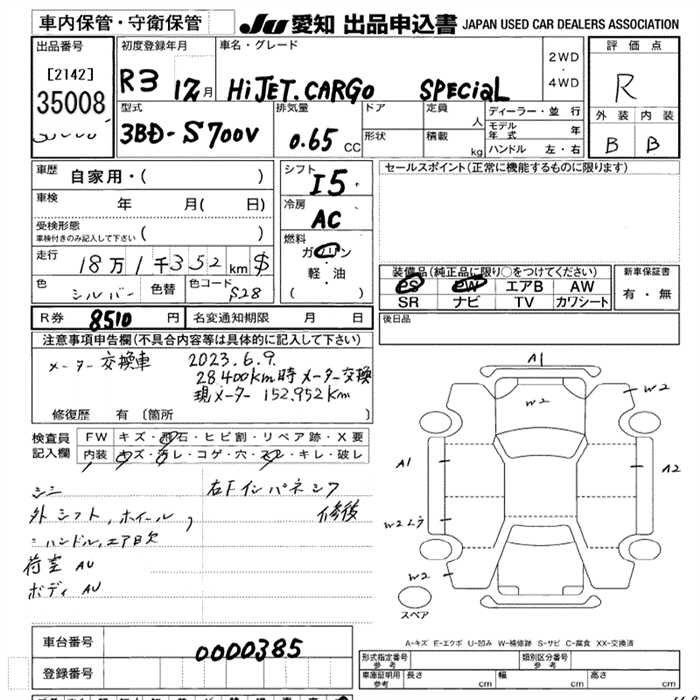 車内保管・守衛保管
JU 愛知 出品申込書 JAPAN USED CAR DEALERS ASSOCIATION
出品番号
[2142]
35008
初度登録年月
R3 12月
車名・グレード
HiJET.CARGO SPECiaL
2WD
・
4WD
評価点
R
外装 内装
B B
型式
3BD-S700V
排気量
0.65 CC
ドア
形状
定員
人
積載
kg
ディーラー・並行
モデル年式 年
ハンドル 左・右
車歴
自家用・( )
車検
年 月( 日)
受検形態
車検付きのみ記入して下さい ( )
走行
18万1千352km $
色
シルバー
色替
色コード
S28
シフト
I5
冷房
AC
燃料
ガソリン
・
軽・油
( )
セールスポイント(正常に機能するものに限ります)
装備品(純正品に限り○をつけてください)
PS PW エアB AW
SR ナビ TV カワシート
新車保証書
有・無
R券 8510 円 名変通知期限 月 日
後日品
注意事項申告欄(不具合内容等は具体的に記入して下さい)
メーター交換車 2023.6.9.
28400km時メーター交換
現メーター152.952km
修復歴 有〔箇所 〕
検査員
記入欄
FW キズ・飛石・ヒビ割・リペア跡・X要
内装 キズ・汚レ・コゲ・穴・スレ・キレ・破レ
右Fインパネシワ
外シフト,ホイール,
修後
ハンドル,エアB欠
荷室 AU
ボディ AU
A1
W2
W2
A1
A2
W2
W2
スペア
A-キズ E-エクボ U-凹み W-補修跡 S-サビ C-腐食 XX-交換済
車台番号 0000385
登録番号
形式指定番号
参考
類別区分番号
参考
車庫証明用
参考
長さ cm 幅 cm 高さ cm